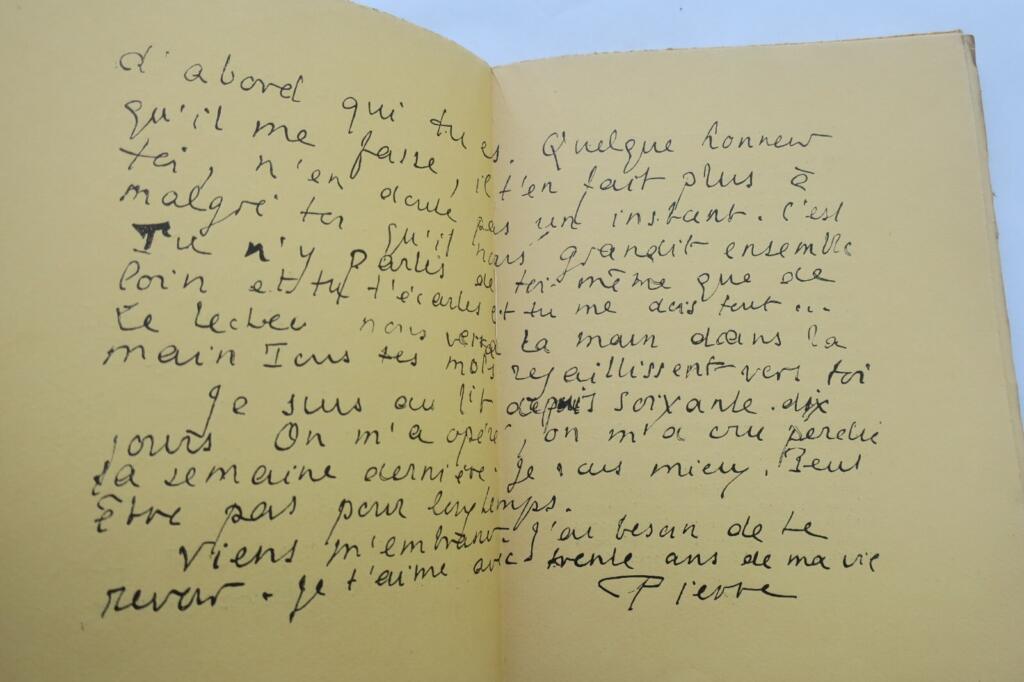 d'abord qui tu es. Quelque honneur
qu'il me fasse, il t'en fait plus à
toi, n'en doute pas un instant. C'est
malgré toi qu'il nous grandit ensemble
Tu n'y parlis de toi-même que de
loin et tu t'écartes et tu me dois tout...
Le lecteu nous verra la main dans la
main Tous tes mots rejaillissent vers toi
Je suis au lit depuis soixante-dix
jours On m'a opéré, on m'a cru perdu
la semaine dernière. Je vais mieux. Peut
être pas pour longtemps.
Viens m'embrasser. J'ai besoin de te
revoir. Je t'aime avec trente ans de ma vie
Pierre